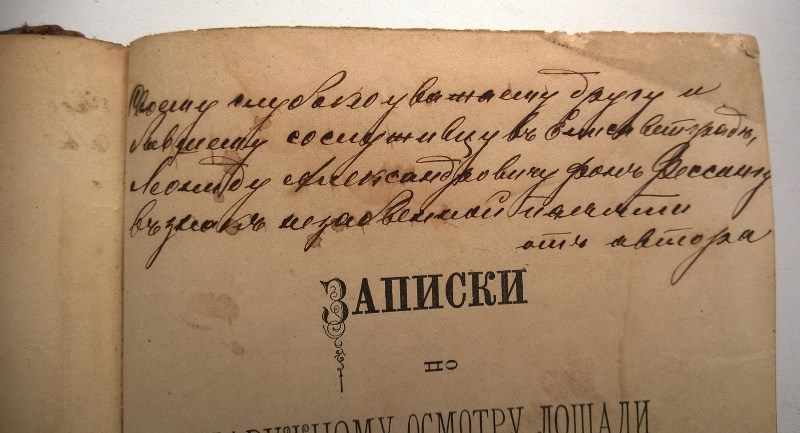 Своему глубокоуважаемому другу и
бывшему сослуживцу въ Елисаветградѣ,
Леониду Александровичу фонъ Фессингу
въ знакъ незабвенной памяти
отъ автора
ЗАПИСКИ
ПО
НАРУЖНОМУ ОСМОТРУ ЛОШАДИ